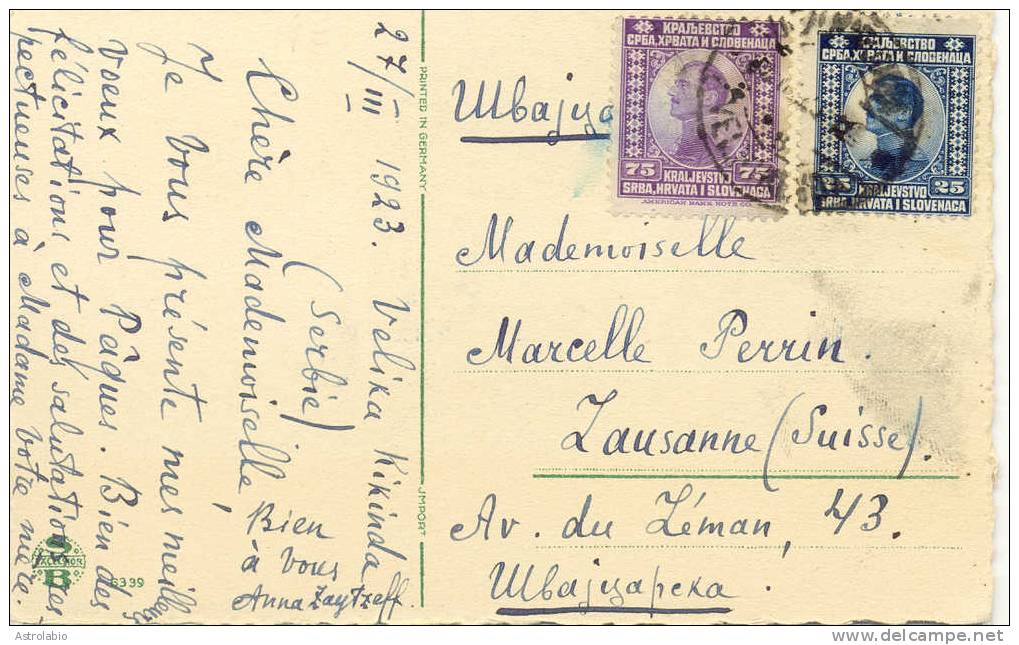 27/III 1923. Velika Kikinda
(Serbie)
Chère Mademoiselle,
Je vous présente mes meilleurs
voeux pour Pâques. Bien des
félicitations et des salutations res-
pectueuses à Madame votre mère.
Bien
à vous
Anna Zaytzeff.
EXCELSIOR
S
B
6339
PRINTED IN GERMANY
IMPORT
КРАЉЕВСТВО
СРБА, ХРВАТА И СЛОВЕНАЦА
75 75
KRALJEVSTVO
SRBA, HRVATA I SLOVENACA
AMERICAN BANK NOTE CO.
КРАЉЕВСТВО
СРБА, ХРВАТА И СЛОВЕНАЦА
25 25
KRALJEVSTVO
SRBA, HRVATA I SLOVENACA
Швајца
Mademoiselle
Marcelle Perrin.
Lausanne (Suisse).
Av. du Léman, 43.
Швајцарска.
Astrolabio
delcampe.net